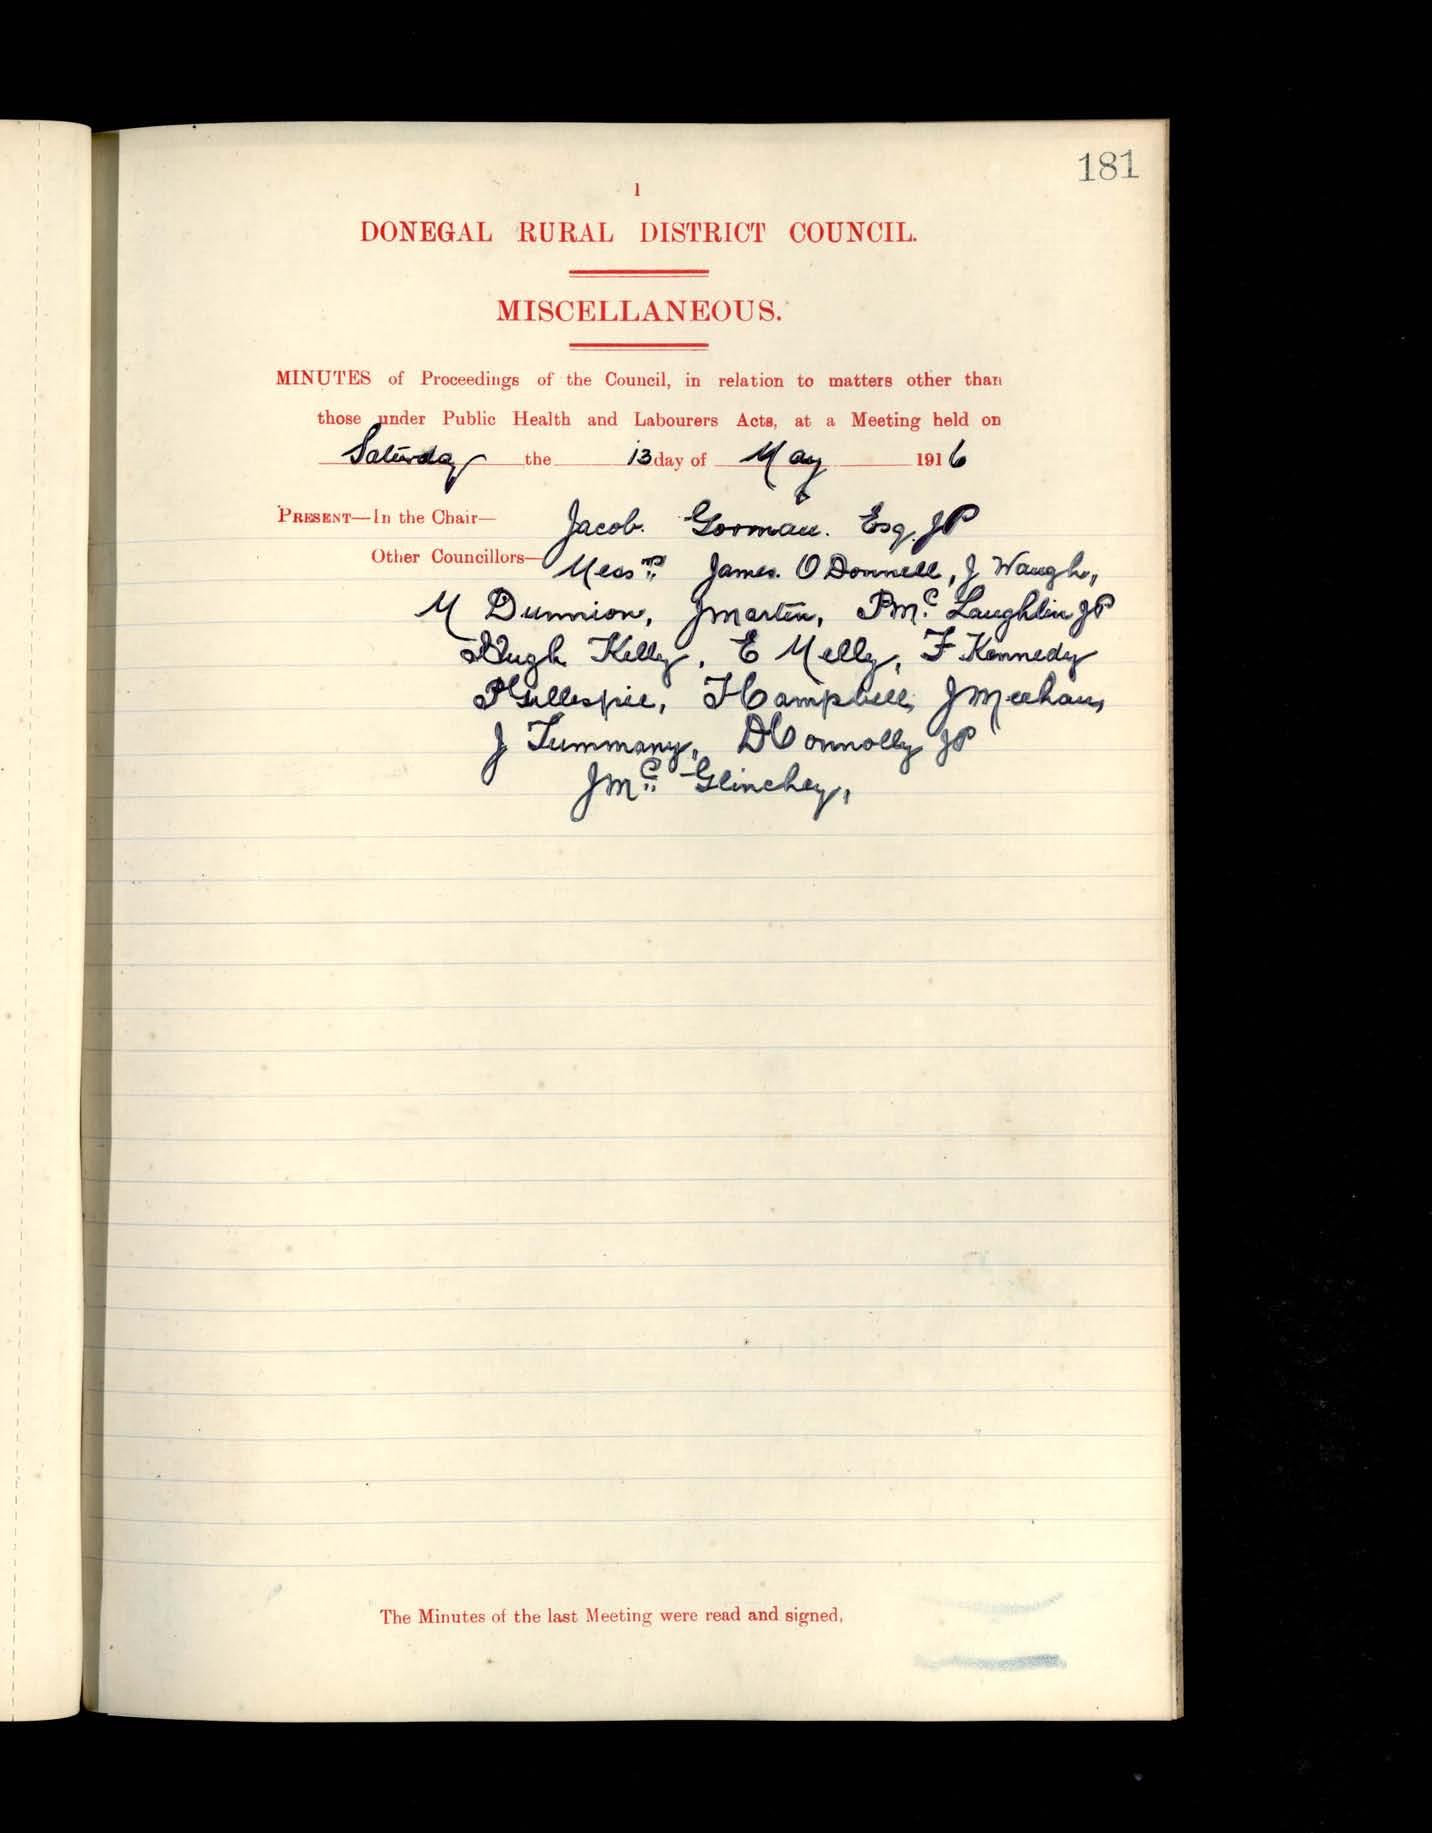 181
1
DONEGAL RURAL DISTRICT COUNCIL.
MISCELLANEOUS.
MINUTES of Proceedings of the Council, in relation to matters other than
those under Public Health and Labourers Acts, at a Meeting held on
Saturday the 13 day of May 1916
PRESENT—In the Chair— Jacob. Gorman. Esq. JP
Other Councillors— Messrs James. O Donnell, J Waugh,
M Dunnion, J Martin, P Mc Laughlin JP
Hugh Kelly, E Melly, F Kennedy
P Gillespie, J Campbell, J Meehan,
J Tummany, D Connolly JP
J Mc Glinchey,
The Minutes of the last Meeting were read and signed,